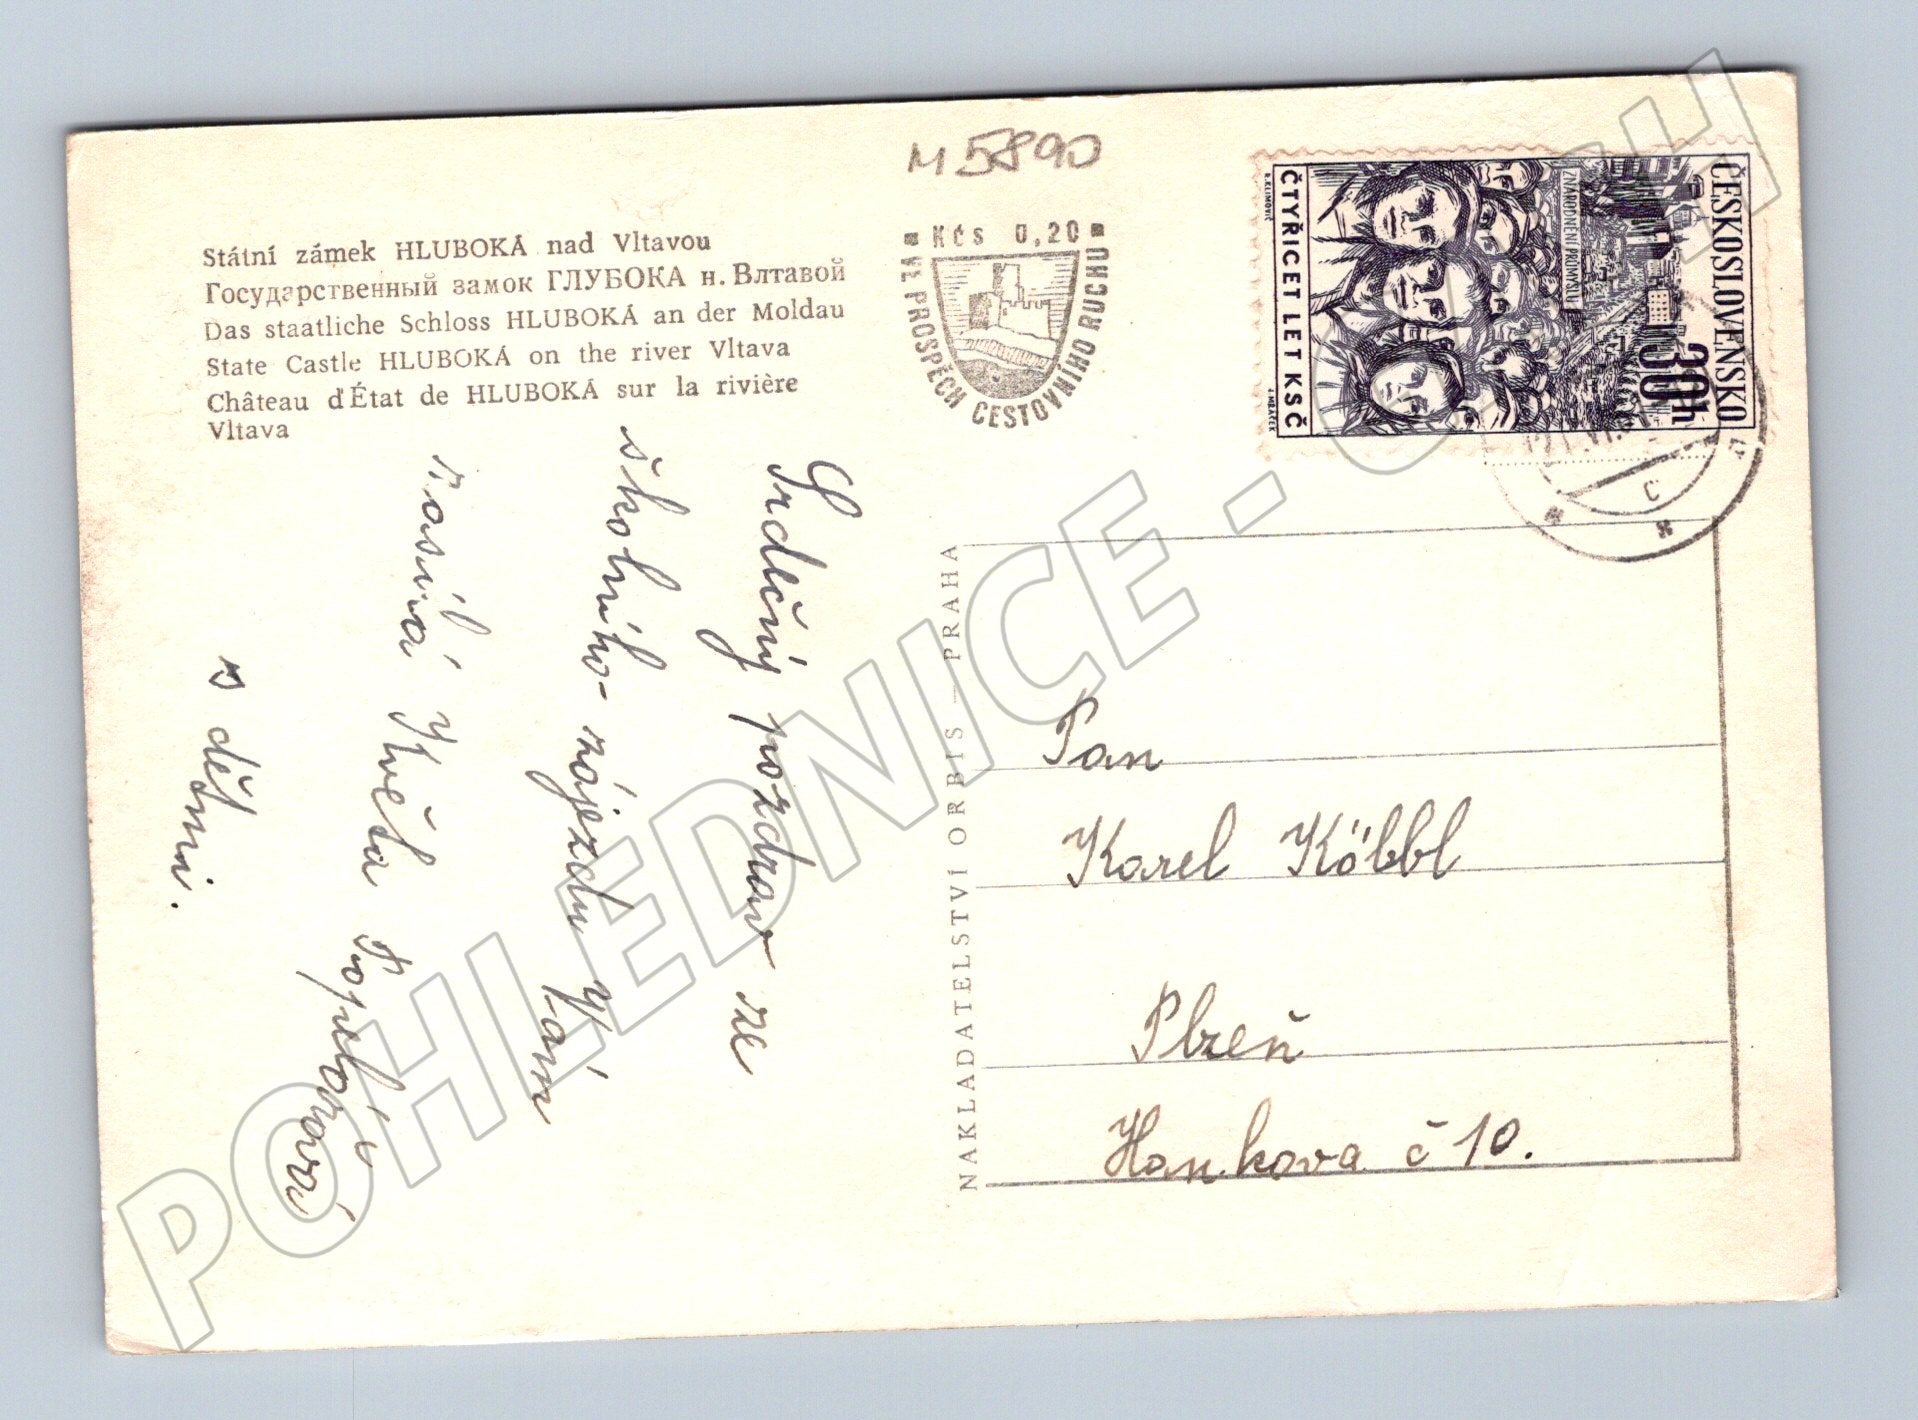 M 5890
Státní zámek HLUBOKÁ nad Vltavou
Государственный замок ГЛУБОКА н. Влтавой
Das staatliche Schloss HLUBOKÁ an der Moldau
State Castle HLUBOKÁ on the river Vltava
Château d'État de HLUBOKÁ sur la rivière
Vltava
Kčs 0,20
VE PROSPĚCH CESTOVNÍHO RUCHU
ČESKOSLOVENSKO
30h
ZNÁRODNĚNÍ PRŮMYSLU
ČTYŘICET LET KSČ
J. MRÁČEK
Srdečný pozdrav ze
školního zájezdu Vám
zasílá Květa
s dětmi.
NAKLADATELSTVÍ ORBIS — PRAHA
Pan
Karel Köbbl
Plzeň
Hankova č 10.
POHLEDNICE